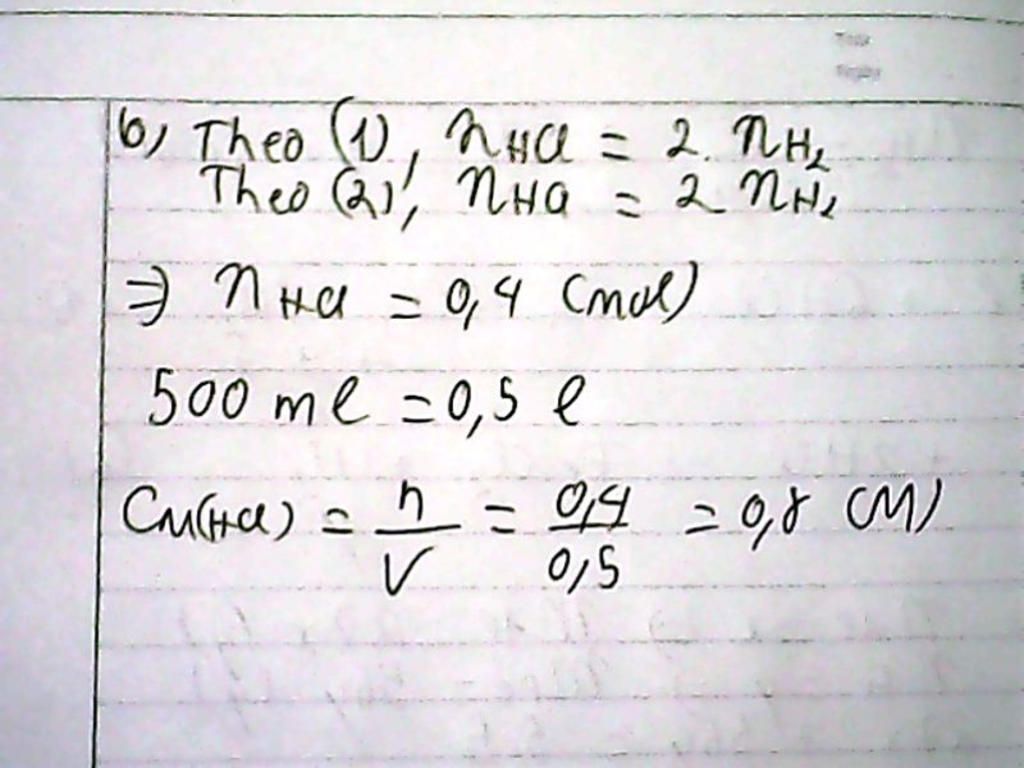 b, Theo (1), nHCl = 2. nH₂
Theo (2), nHCl = 2 nH₂
⇒ nHCl = 0,4 (mol)
500 ml = 0,5 l
CM(HCl) = n/V = 0,4/0,5 = 0,8 (M)